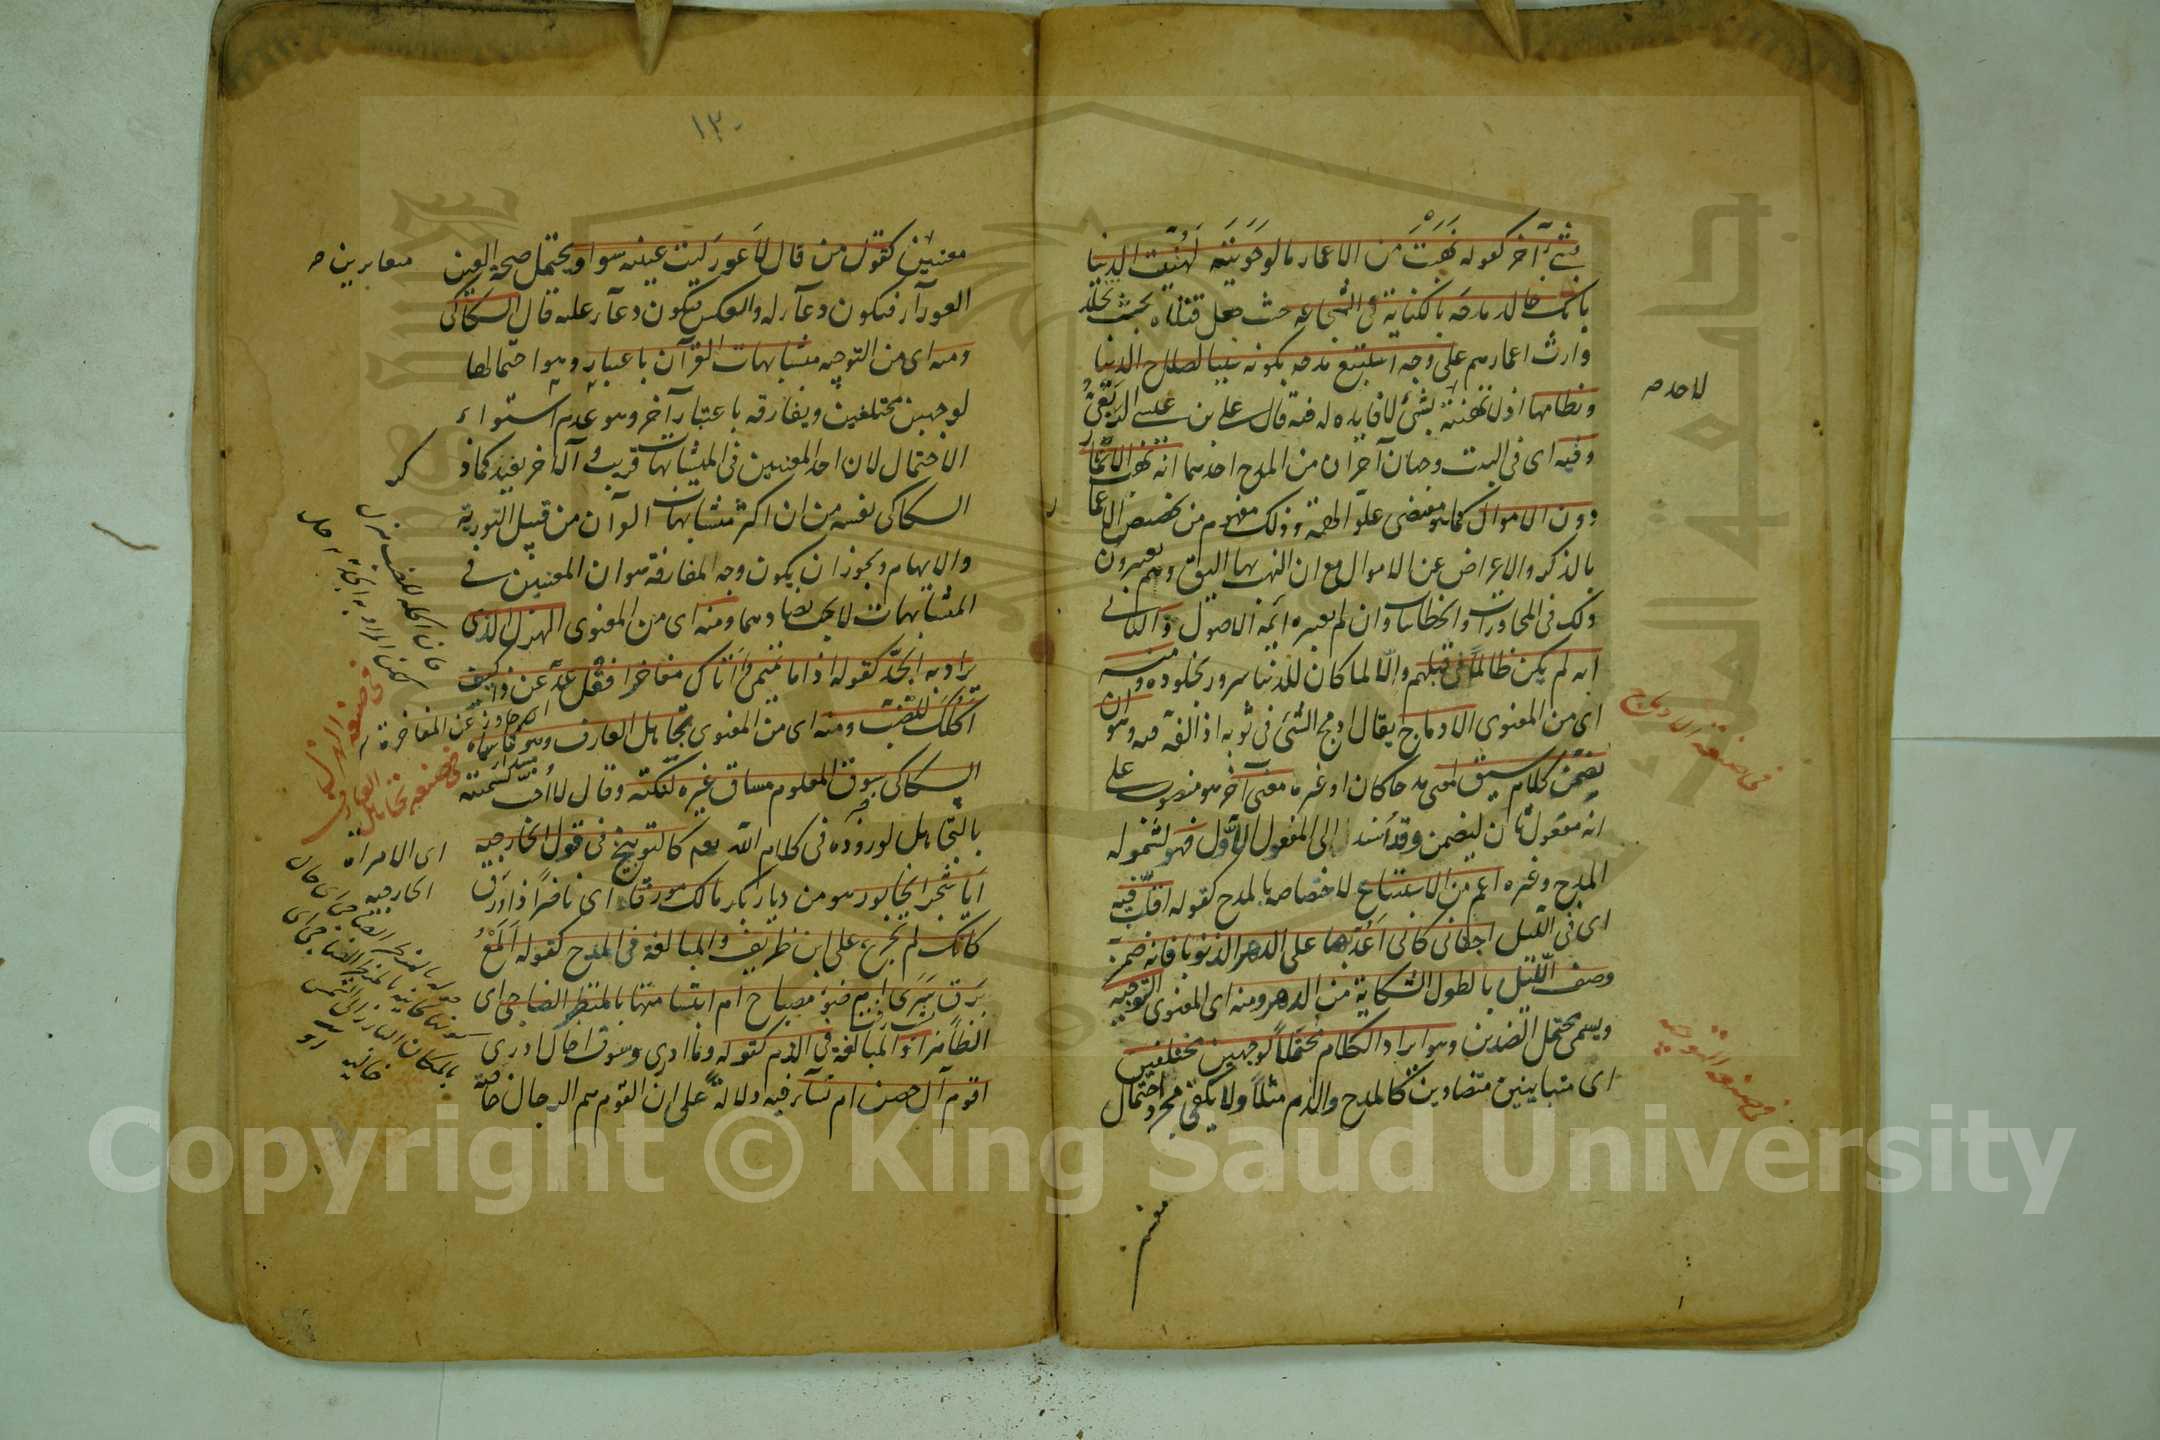 بشيء آخر كقوله نهبت من الاعمار ما لو حويته لهنئت الدنيا
بانك خالد مدحه بالنهاية فى الشجاعة حيث جعل قتلاه بحيث يخلد
وارث اعمارهم على وجه استتبع مدحه بكونه سببا لصلاح الدنيا
ونظامها اذ لا تهنئة بشئ لا فايده له فيه قال على بن عيسى الربعى
وفيه اى فى البيت وجهان آخران من المدح احدهما انه نهب الاعمار
دون الاموال كما هو مقتضى علو الهمة وذلك مفهوم من تخصيص الاعمار
بالذكر والاعراض عن الاموال مع ان النهب بها اليق وهم يعتبرون
ذلك فى المحاورات والخطابيات وان لم يعتبره ائمة الاصول والثانى
انه لم يكن ظالما فى قتلهم والا لما كان للدنيا سرور بخلوده ومنه
اى من المعنوى الادماج يقال ادمج الشئ فى ثوبه اذا لفه فيه وهو ان
يضمن كلام سيق لمعنى مدحا كان او غيره معنى آخر هو منصوب على
انه مفعول ثان ليضمن وقد اسند الى المفعول الاول فهو لشموله
المدح وغيره اعم من الاستتباع لاختصاصه بالمدح كقوله اقلب فيه
اى فى الليل اجفانى كانى اعد بها على الدهر الذنوبا فانه ضمن
وصف الليل بالطول الشكاية من الدهر ومنه اى المعنوى التوجيه
ويسمى محتمل الضدين وهو ايراد الكلام محتملا لوجهين مختلفين
اى متباينين متضادين كالمدح والذم مثلا ولا يكفى مجرد احتمال
لاحد صه
فى صنعة الادماج
فى صنعة التوجيه
١٣٠
معنيين كقول من قال لاعور ليت عينيه سواء يحتمل صحة العين
العوراء فيكون دعاء له والعكس فيكون دعاء عليه قال السكاكى
ومنه اى من التوجيه متشابهات القرآن باعتبار وهو احتمالها
لوجهين مختلفين ويفارقه باعتبار آخر وهو عدم استواء
الاحتمال لان احد المعنيين فى المتشابهات قريب والآخر بعيد كما ذكر
السكاكى نفسه من ان اكثر متشابهات القرآن من قبيل التورية
والايهام ويجوز ان يكون وجه المفارقة هو ان المعنيين فى
المتشابهات لا يجب تضادهما ومنه اى من المعنوى الهزل الذى
يراد به الجد كقوله اذا ما تميمى اتاك مفاخرا فقل عد عن ذا كيف
اكلك للضب ومنه اى من المعنوى تجاهل العارف وهو كما سماه
السكاكى سوق المعلوم مساق غيره لنكتة وقال لا احب تسميته
بالتجاهل لوروده فى كلام الله تعالى كالتوبيخ فى قول الخارجية
ايا شجر الخابور هو من ديار بكر مالك مورقا اى ناضرا ذا ورق
كانك لم تجزع على ابن طريف والمبالغة فى المدح كقوله المع
برق سرى ام ضوء مصباح ام ابتسامتها بالمنظر الضاحى اى
الظاهر او المبالغة فى الذم كقوله وما ادرى وسوف اخال ادرى
اقوم آل حصن ام نساء فيه دلالة على ان القوم هم الرجال خاصة
متغايرين صه
فى صنعة الهزل
فى صنعة تجاهل العارف
اى الامرأة
الخارجية